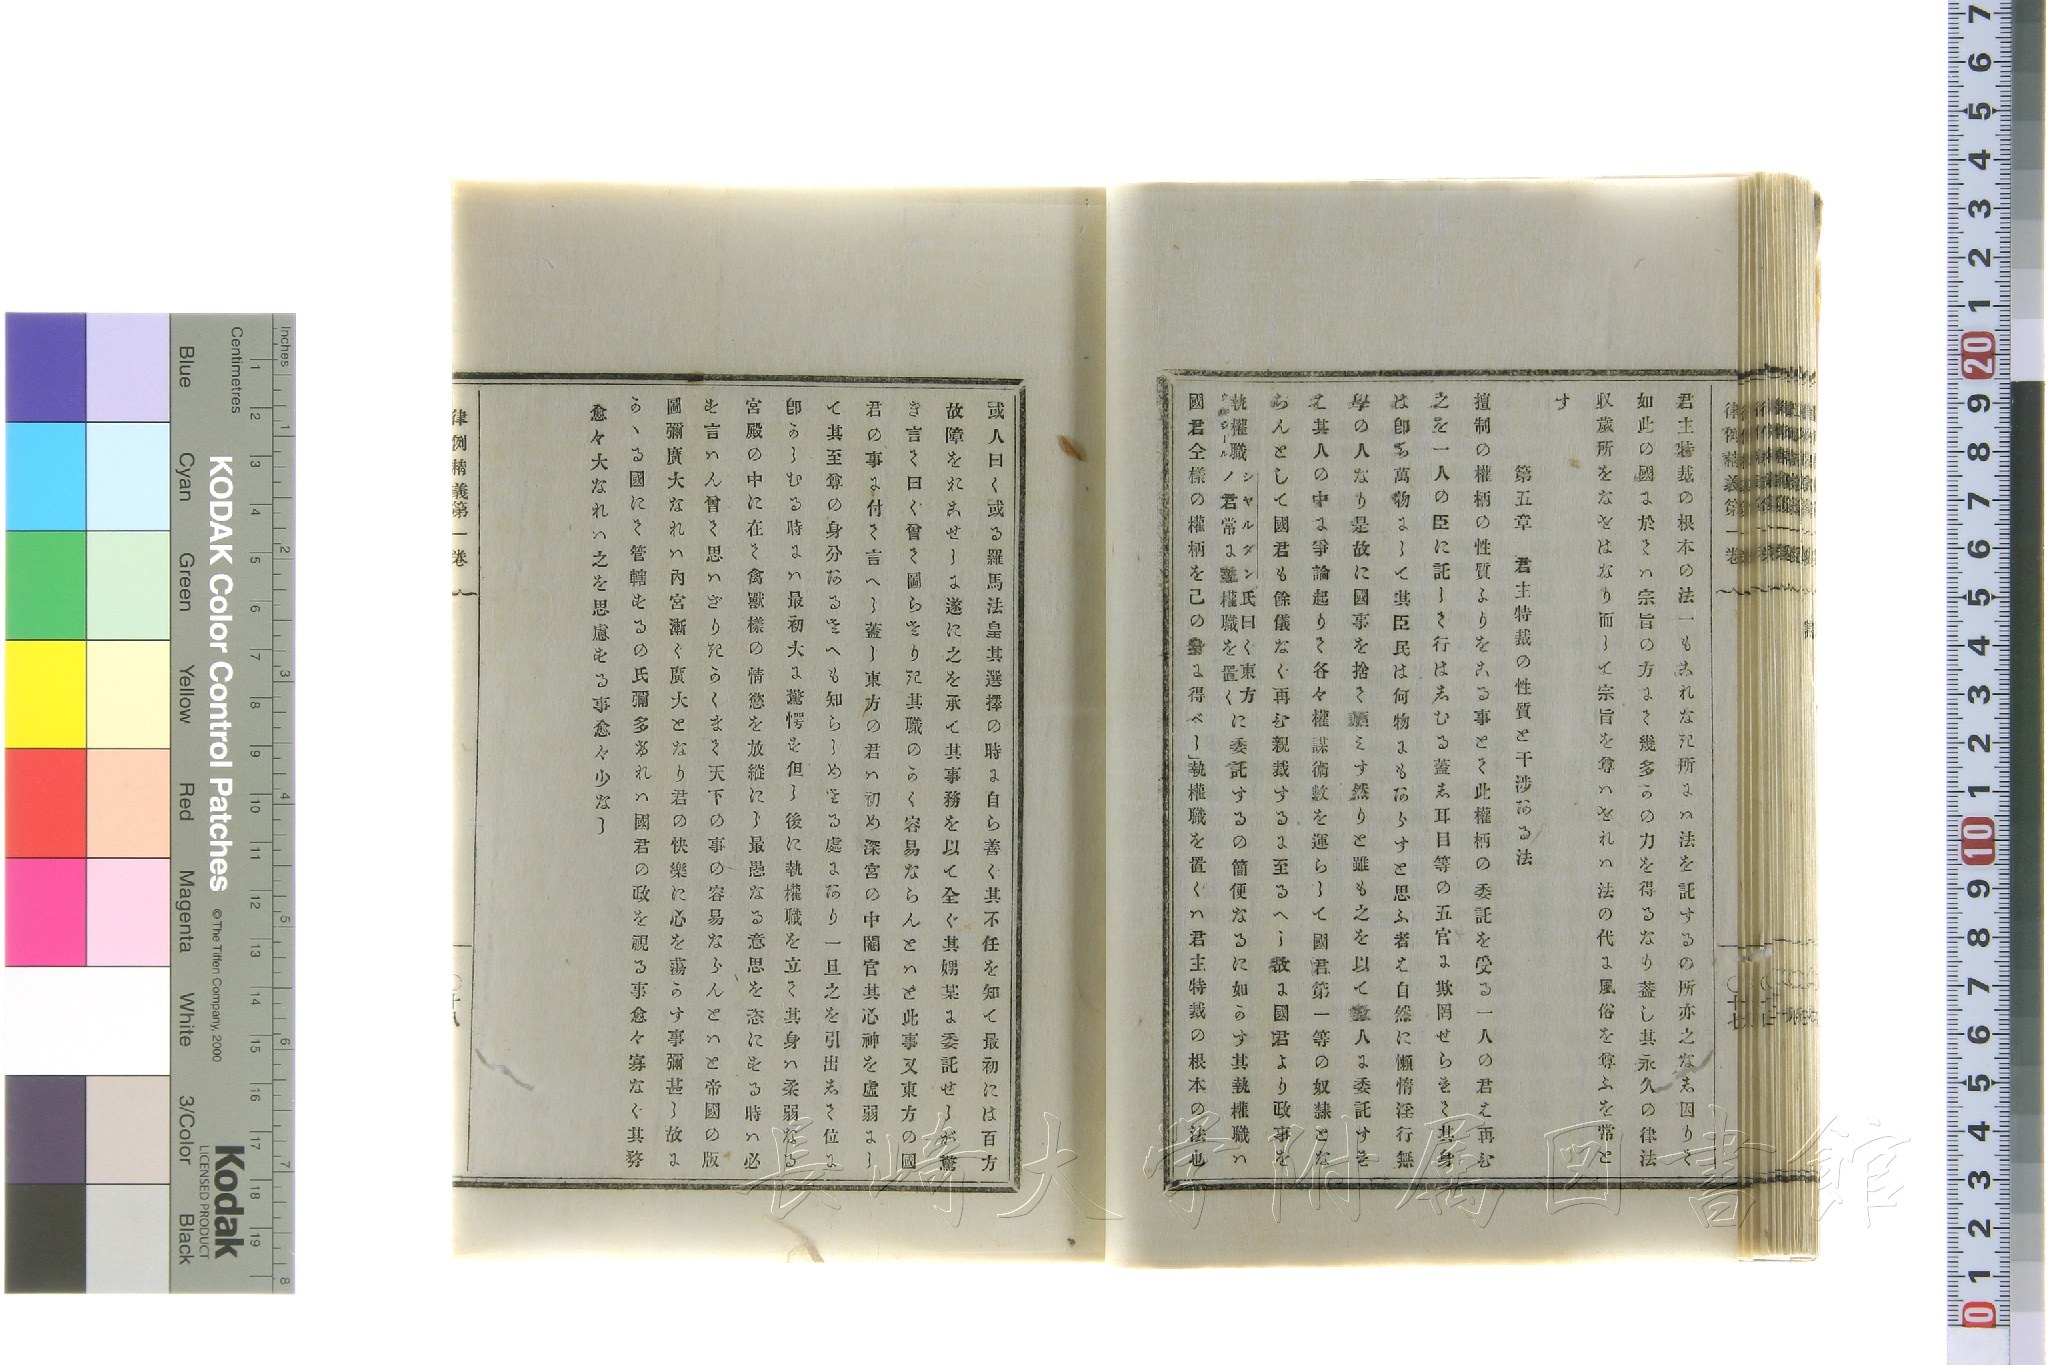 君主特裁の根本の法一もあれなき所にハ法を託するの所亦之なし因りて
如此の國に於てハ宗旨の方にて幾多かの力を得るなり蓋し其永久の律法
収蔵所をなせはなり而して宗旨を尊ハされハ法の代に風俗を尊ふを常と
す
第五章 君主特裁の性質と干渉ある法
擅制の權柄の性質よりをこる事とて此權柄の委託を受る一人の君之再む
之を一人の臣に託して行はしむる蓋し耳目等の五官に欺罔せられて其身
は即ち萬物にして其臣民は何物にもあらすと思ふ者之自然に懶惰淫行無
學の人なり是故に國事を捨て顧みす然りと雖も之を以て衆人に委託すれ
は其人の中に爭論起りて各々權謀術數を運らして國君第一等の奴隷とな
らんとして國君も餘儀なく再む親裁するに至るへし故に國君より政事を
執權職ノ君常に執權職を置く
シヤルダン氏曰く東方
に委託するの簡便なるに如かす其執權職ハ
國君仝樣の權柄を己の身に得べし」執權職を置くハ君主特裁の根本の法也
或人曰く或る羅馬法皇其選擇の時に自ら善く其不任を知て最初には百方
故障をおこせしに遂に之を承て其事務を以て全く其甥某に委託せしが驚
き言て曰く曾て圖らさりき其職のかく容易ならんとハと此事又東方の國
君の事に付て言へし蓋し東方の君ハ初め深宮の中閹官其心神を虚弱にし
て其至尊の身分あるをさへも知らしめさる處にあり一旦之を引出して位に
即かしむる時にハ最初大に驚愕を但し後に執權職を立て其身ハ柔弱なる
宮殿の中に在て禽獸樣の情慾を放縱にし最愚なる意思を恣にする時ハ必
を言ハん曾て思ハざりきかくまて天下の事の容易ならんとハと帝國の版
圖彌廣大なれハ內宮漸く廣大となり君の快樂に心を蕩かす事彌甚し故に
かヽる國にて管轄するの民彌多けれハ國君の政を視る事愈々寡なく其務
愈々大なれハ之を思慮する事愈々少なし
律例精義第一卷
〇十八
律例精義第一卷
〇十七
KODAK Color Control Patches
© The Tiffen Company, 2000
Kodak
LICENSED PRODUCT
Inches
Centimetres
Blue
Cyan
Green
Yellow
Red
Magenta
White
3/Color
Black
長崎大学附属図書館